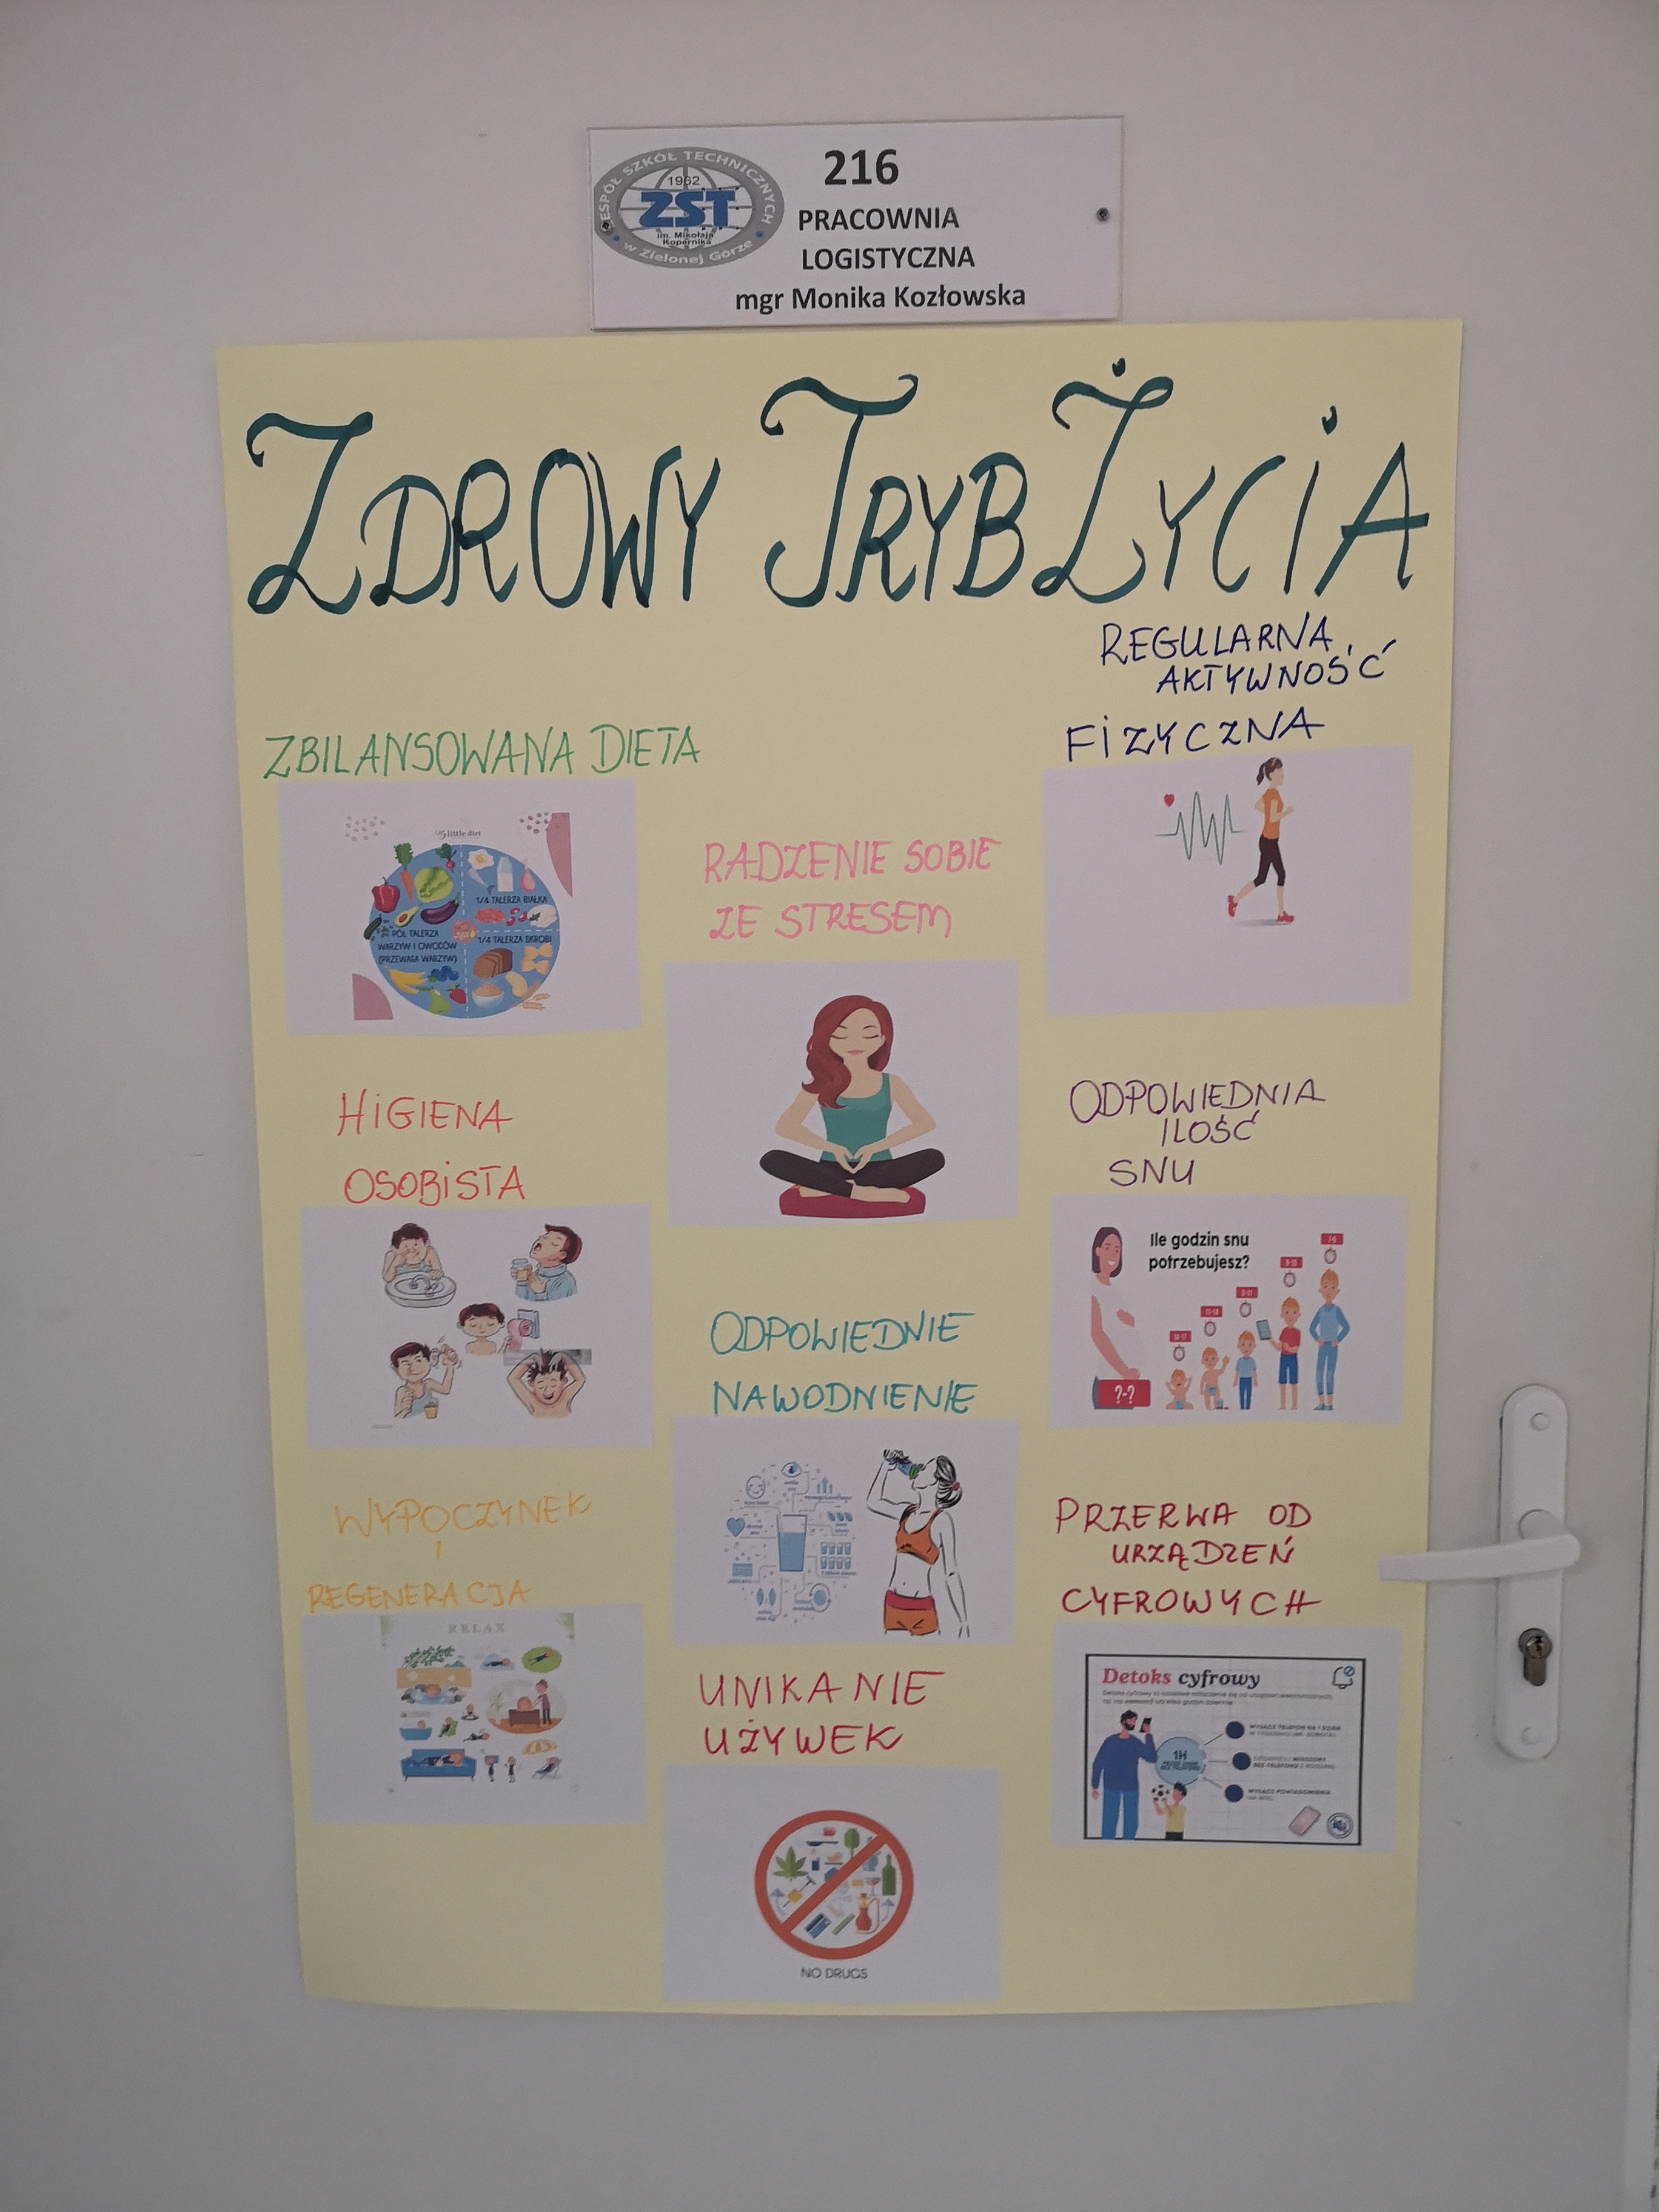 ZESPÓŁ SZKÓŁ TECHNICZNYCH
1962
ZST
im. Mikołaja
Kopernika
w Zielonej Górze
216
PRACOWNIA
LOGISTYCZNA
mgr Monika Kozłowska
ZDROWY TRYB ŻYCIA
REGULARNA
AKTYWNOŚĆ
FIZYCZNA
ZBILANSOWANA DIETA
little diet
1/4 TALERZA BIAŁKA
PÓŁ TALERZA
WARZYW I OWOCÓW
(PRZEWAGA WARZYW)
1/4 TALERZA SKROBI
RADZENIE SOBIE
ZE STRESEM
HIGIENA
OSOBISTA
ODPOWIEDNIA
ILOŚĆ
SNU
Ile godzin snu
potrzebujesz?
?-?
ODPOWIEDNIE
NAWODNIENIE
WYPOCZYNEK
I
REGENERACJA
RELAX
PRZERWA OD
URZĄDZEŃ
CYFROWYCH
Detoks cyfrowy
1H
UNIKANIE
UŻYWEK
NO DRUGS